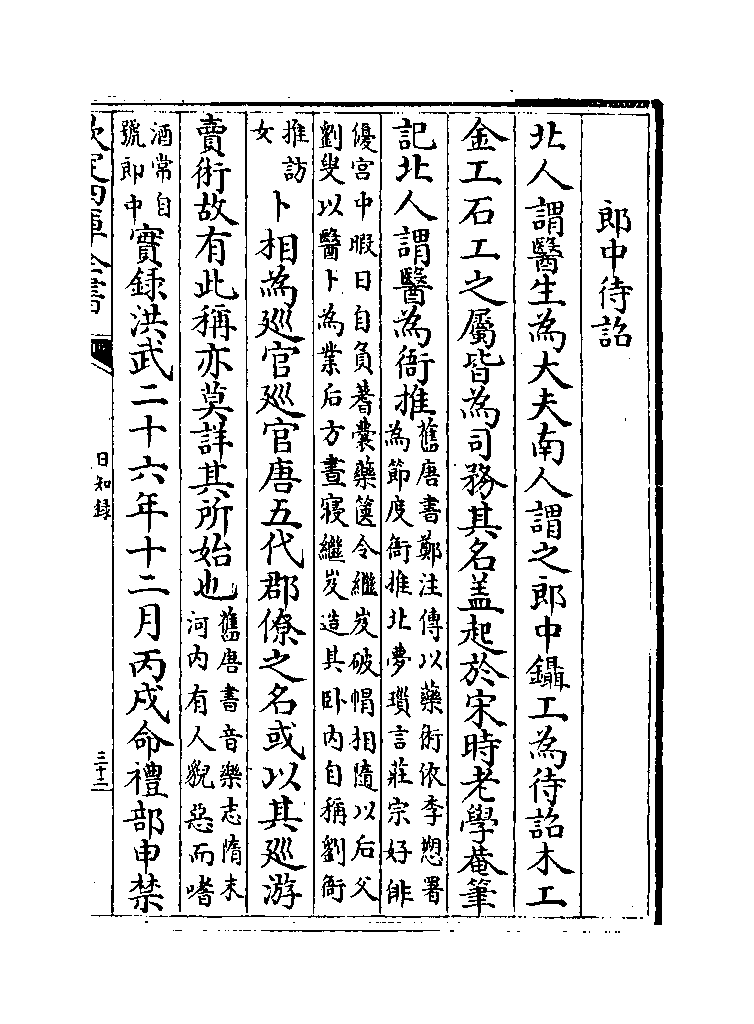 郎中待詔
北人謂醫生為大夫南人謂之郎中鑷工為待詔木工
金工石工之屬皆為司務其名盖起於宋時老學菴筆
記北人謂醫為衙推舊唐書鄭注傳以藥術依李愬署
為節度衙推北夢瑣言莊宗好俳
優宮中暇日自負蓍囊藥篋令繼岌破帽相隨以后父
劉叟以醫卜為業后方晝寢繼岌造其卧内自稱劉衙
推訪
女卜相為廵官廵官唐五代郡僚之名或以其廵游
賣術故有此稱亦莫詳其所始也舊唐書音樂志隋末
河内有人貌惡而嗜
酒常自
號郎中實錄洪武二十六年十二月丙戌命禮部申禁
欽定四庫全書
日知録
三十二